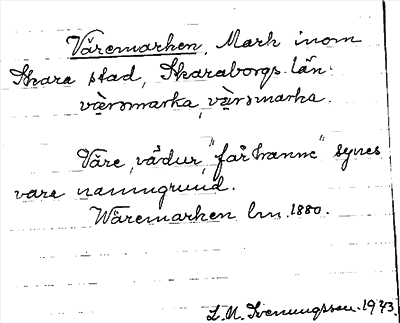 Väremarken, Mark inom
Skara stad, Skaraborgs län.
væ̀rəmarka, væ̀rəmarka.
Väre, vädur, "fårhanne" synes
vara namngrund.
Wäremarken lm. 1880.
L. M. Svenungsson. 1943.